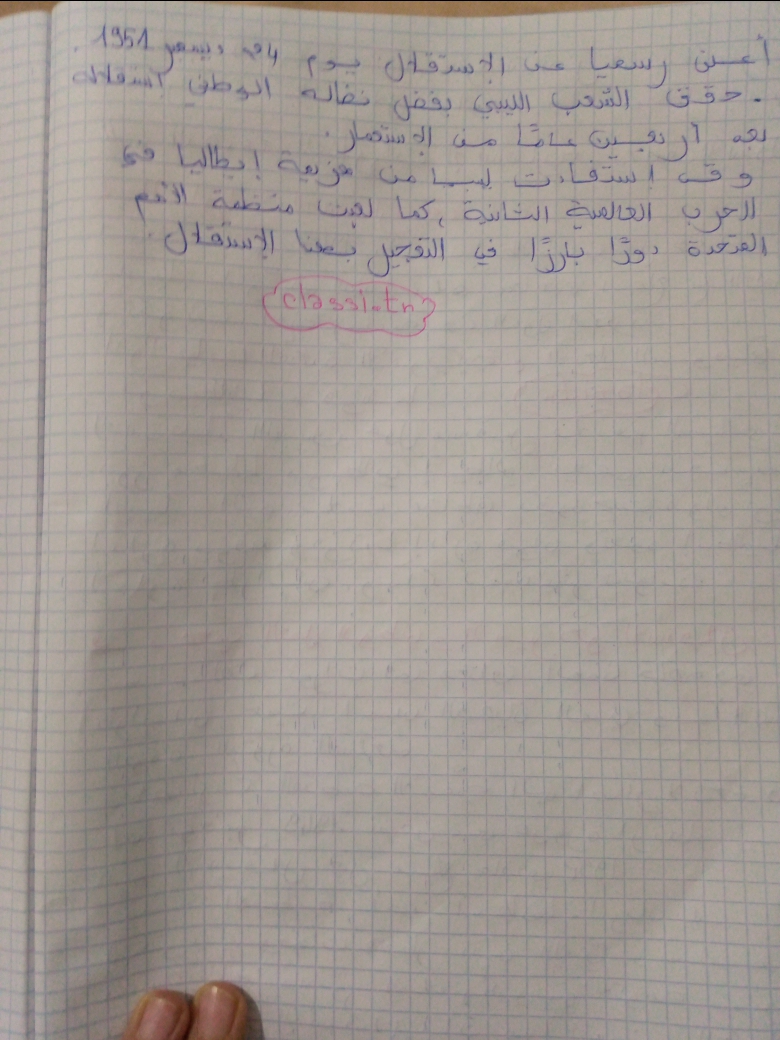 أعلن رسميا عن الإستقلال يوم 24 ديسمبر 1951.
حقق الشعب الليبي بفضل نضاله الوطني استقلاله
بعد أربعين عامًا من الإستعمار.
وقد استفادت ليبيا من هزيمة إيطاليا في
الحرب العالمية الثانية, كما لعبت منظمة الأمم
المتحدة دورًا بارزًا في التعجيل بهذا الإستقلال.
classi.tn